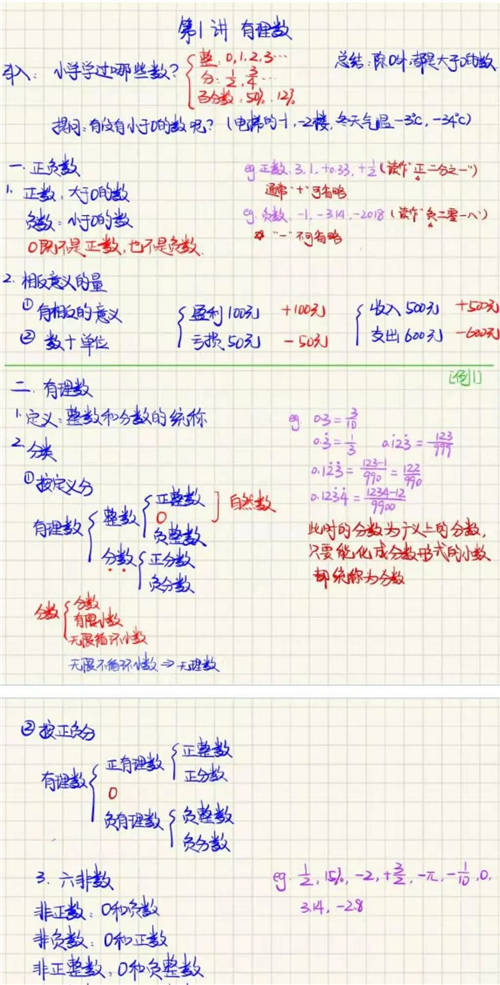 第1讲 有理数
引入：小学学过哪些数？ 整：0,1,2,3…
分：1/2, 3/4…
百分数：50%, 12%
总结：除0外，都是大于0的数
提问：有没有小于0的数呢？（电梯的-1,-2楼，冬天气温-3℃,-34℃）
一. 正负数
1. 正数：大于0的数
负数：小于0的数
0既不是正数，也不是负数.
eg 正数：3, 1, +0.33, +1/2 (读作“正二分之一”)
通常“+”可省略
eg. 负数：-1, -3.14, -2018 (读作“负二零一八”)
“-”不可省略
2. 相反意义的量
① 有相反的意义
② 数+单位
盈利100元 +100元
亏损50元 -50元
收入500元 +500元
支出600元 -600元
[例1]
二. 有理数
1. 定义：整数和分数的统称
2. 分类
① 按定义分
有理数 整数 正整数
0
负整数
自然数
分数 正分数
负分数
分数 分数
有限小数
无限循环小数
无限不循环小数 ⇒ 无理数
eg. 0.3 = 3/10
0.3̇ = 1/3 0.1̇23̇ = 123/999
0.12̇3̇ = 123-1/990 = 122/990
0.123̇4̇ = 1234-12/9900
此时的分数为广义上的分数，
只要能化成分数形式的小数
都统称为分数
② 按正负分
有理数 正有理数 正整数
正分数
0
负有理数 负整数
负分数
3. 六非数
非正数：0和负数
非负数：0和正数
非正整数：0和负整数
eg. 1/2, 15%, -2, +3/2, -π, -1/10, 0,
3.14, -2.8